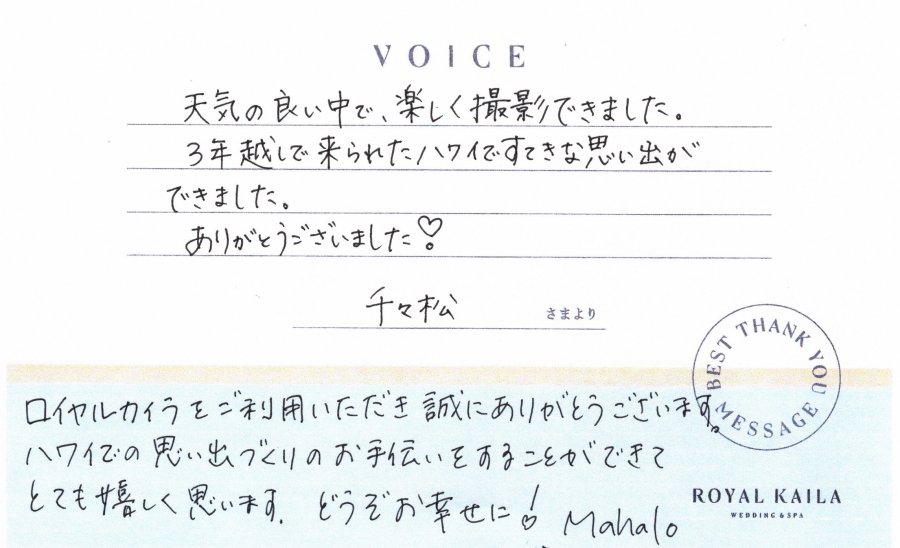 VOICE
天気の良い中で、楽しく撮影できました。
3年越しで来られたハワイですてきな思い出が
できました。
ありがとうございました♡
千々松 さまより
BEST THANK YOU MESSAGE
ロイヤルカイラをご利用いただき誠にありがとうございます。
ハワイでの思い出づくりのお手伝いをすることができて
とても嬉しく思います。どうぞお幸せに! Mahalo
ROYAL KAILA
WEDDING & SPA